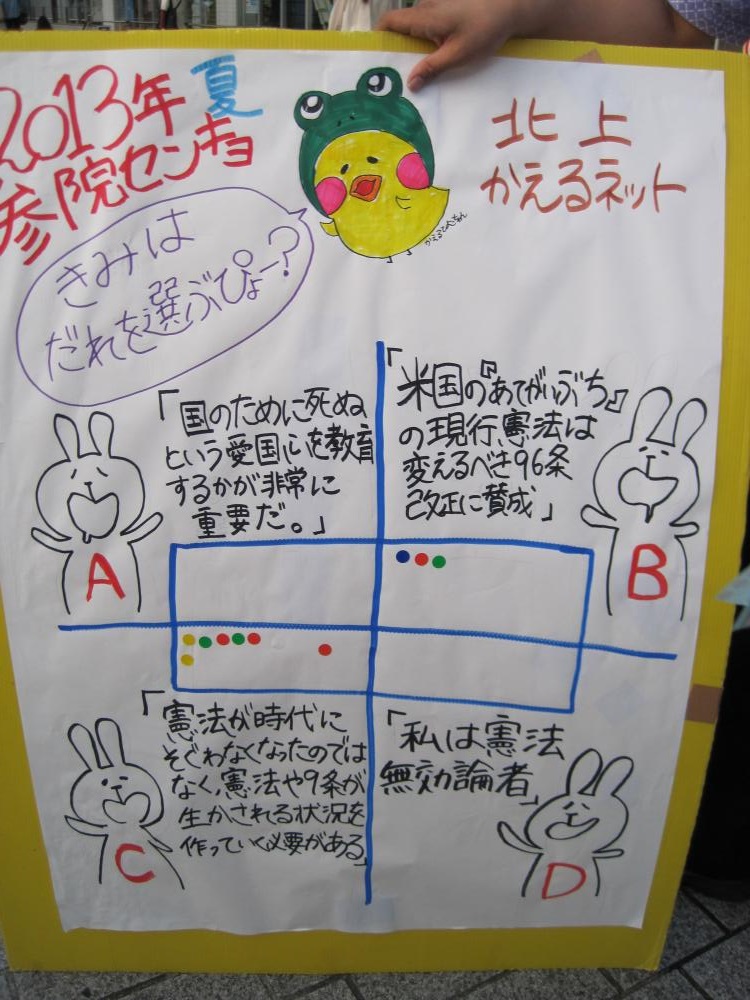 2013年 夏
参院センキョ
北上
かえるネット
きみは
だれを選ぶぴょー?
「国のために死ぬ
という愛国心を教育
するかが非常に
重要だ。」
A
「米国の『あてがいぶち』
の現行憲法は
変えるべき96条
改正に賛成」
B
「憲法が時代に
そぐわなくなったのでは
なく、憲法や9条が
生かされる状況を
作っていく必要がある」
C
「私は憲法
無効論者」
D